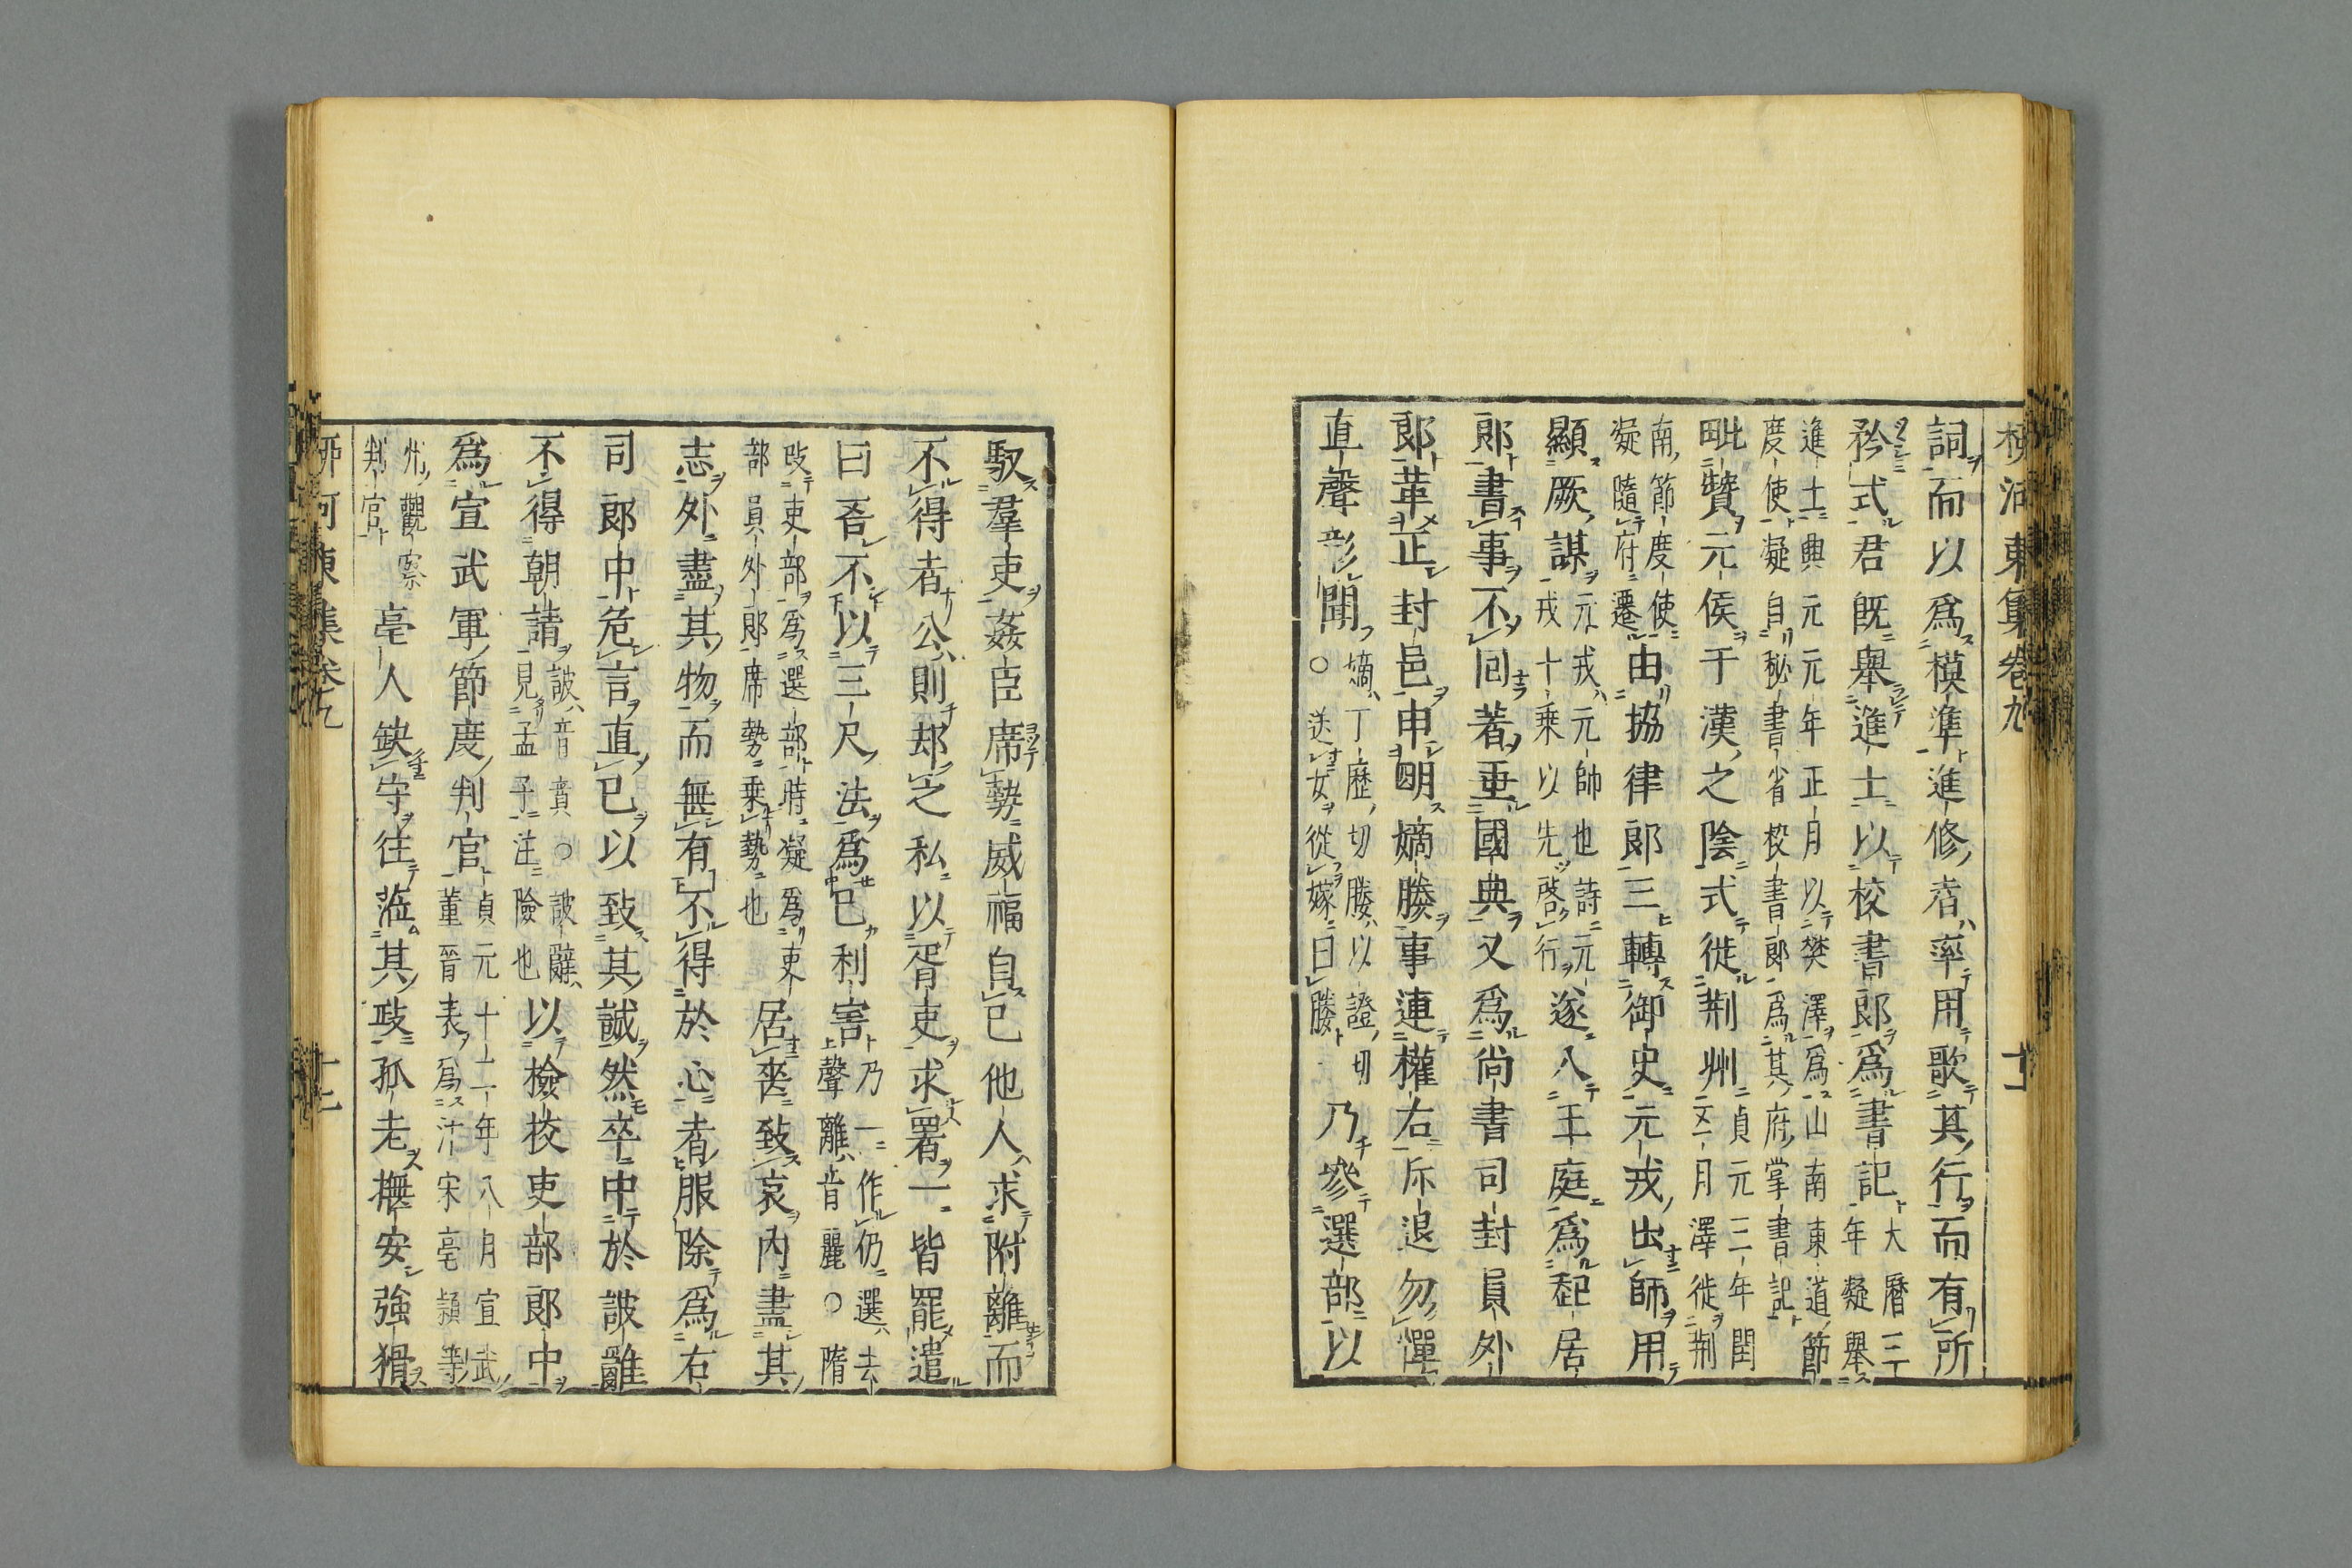 詞而以爲模準進修者率用歌其行而有所
矜式君既舉進士以校書郎爲書記大曆三丁
年凝舉
進士典元元年正月以樊澤爲山南東道節
度使凝自秘書省校書郎爲其府掌書記
毗贊元侯于漢之陰式徙荆州貞元三年閏
五月澤徙荆
南節度使
凝隨府遷由協律郎三轉御史元戎出師用
顯厥謀元戎元帥也詩元
戎十乘以先啓行遂入王庭爲起居
郎書事不回著垂國典又爲尚書司封員外
郎革正封邑申明嫡媵事連權右斥退勿憚
直聲彰聞嫡丁歷切媵以證切
○送女從嫁曰媵乃參選部以
柳河東集卷九
馭羣吏姦臣席勢威福自已他人求附離而
不得者公則却之私以胥吏求署一皆罷遣
曰吾不以三尺法爲已利害乃一作仍選去
上聲離音麗○隋
改吏部爲選部時凝爲吏
部員外郎席勢乘勢也居喪致哀内盡其
志外盡其物而無有不得於心者服除爲右
司郎中危言直已以致其誠然卒中於詖辭
不得朝請詖音賁○詖辭
見孟子注險也以檢校吏部郎中
爲宣武軍節度判官貞元十二年八月宣武
董晉表爲汴宋亳潁等
州觀察
判官亳人缺守往蒞其政孤老撫安強猾
柳河東集卷九
十二